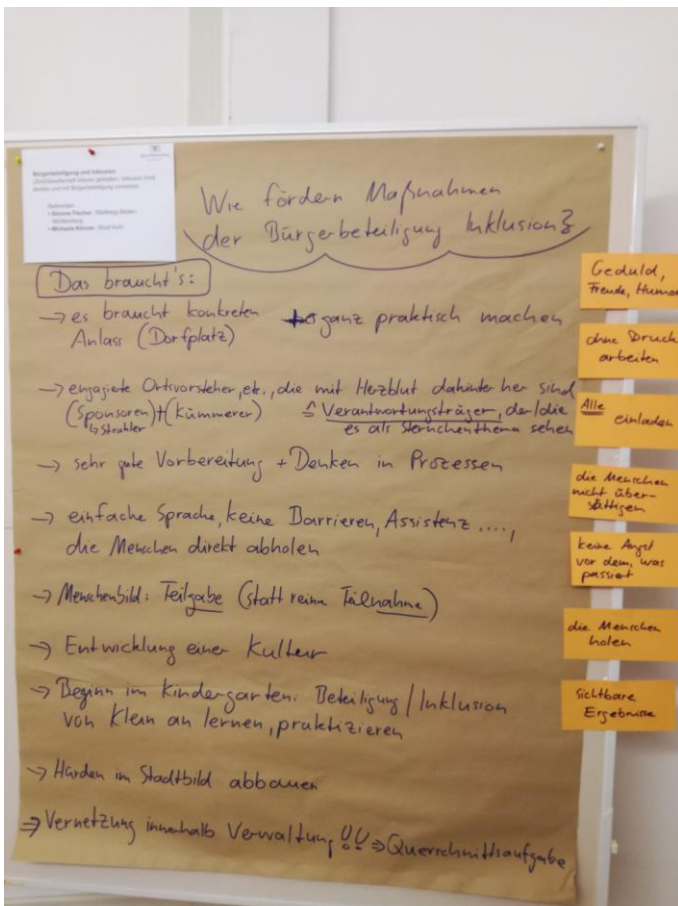 Bürgerbeteiligung und Inklusion
Referenten
Wie fördern Maßnahmen
der Bürgerbeteiligung Inklusion?
Das braucht's:
→ es braucht konkreten → ganz praktisch machen
Anlass (Dorfplatz)
→ engagierte Ortsvorsteher, etc., die mit Herzblut dahinter her sind
(Sponsoren)+(Kümmerer) ≙ Verantwortungsträger, der/die
↳ Strahler es als Sternchenthema sehen
→ sehr gute Vorbereitung + Denken in Prozessen
→ einfache Sprache, keine Barrieren, Assistenz ....,
die Menschen direkt abholen
→ Menschenbild: Teilgabe (statt reine Teilnahme)
→ Entwicklung einer Kultur
→ Beginn im Kindergarten: Beteiligung/Inklusion
von Klein an lernen, praktizieren
→ Hürden im Stadtbild abbauen
⇒ Vernetzung innerhalb Verwaltung!! ⇒ Querschnittsaufgabe
Geduld,
Freude, Humor
ohne Druck
arbeiten
Alle einladen
die Menschen
nicht über-
sättigen
keine Angst
vor dem, was
passiert
die Menschen
holen
sichtbare
Ergebnisse